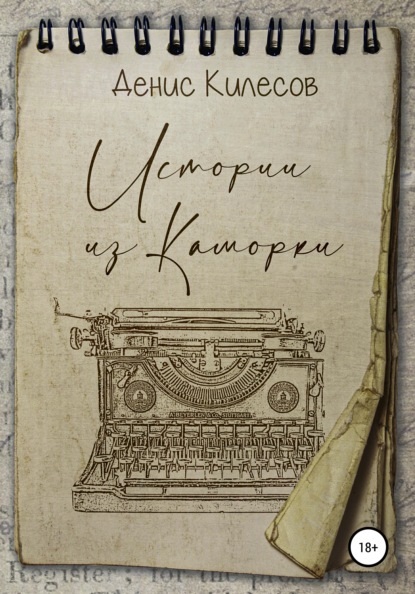 Денис Килесов
Истории
из Каморки
18+
Register, for the pre